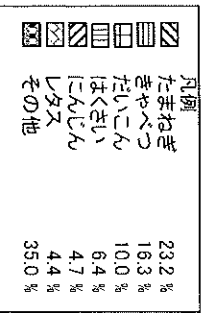 凡例
たまねぎ 23.2 %
きゃべつ 16.3 %
だいこん 10.0 %
はくさい 6.4 %
にんじん 4.7 %
レタス 4.4 %
その他 35.0 %